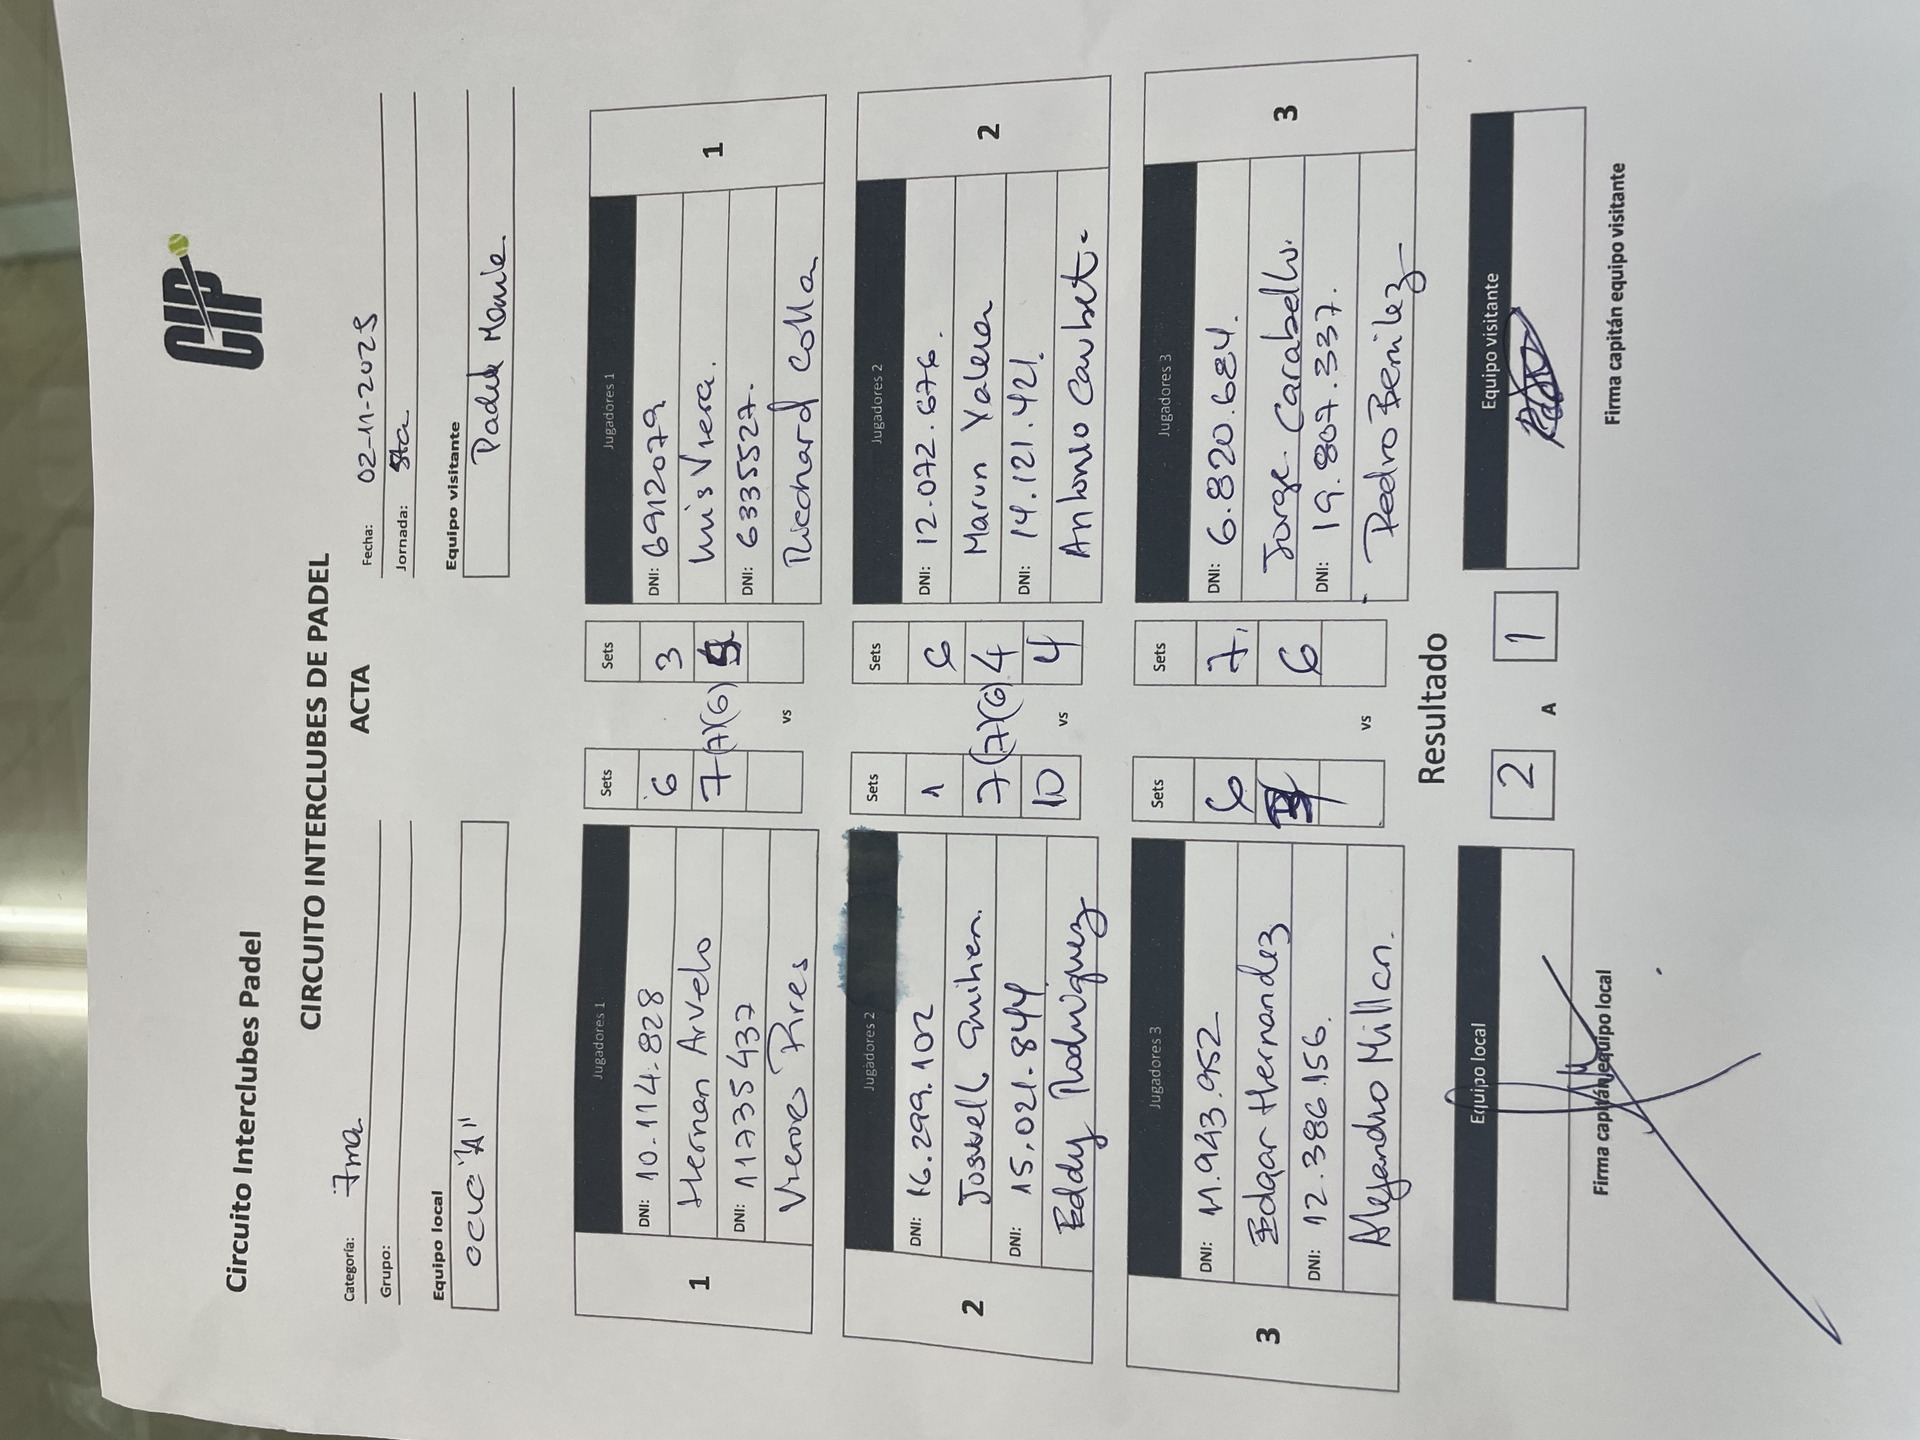 CIP
Circuito Interclubes Padel
CIRCUITO INTERCLUBES DE PADEL
ACTA
Categoría: 7ma
Fecha: 02-11-2025
Grupo:
Jornada: 5ta
Equipo local
Equipo visitante
OCUC "A"
Padel Manía.
Jugadores 1 Sets Sets Jugadores 1
1
DNI: 10.114.828 6 3 DNI: 6912079
Hernan Arvelo 7 (7)(6) Luis Viera.
DNI: 11735437 vs DNI: 6335527.
Pires Colla
1
Jugadores 2 Sets Sets Jugadores 2
2
DNI: 16.299.102 1 6 DNI: 12.072.676.
7 (7)(6) 4 Valera
DNI: 15.021.844 10 vs 4 DNI: 14.121.421.
Eddy Rodriguez Antonio
2
Jugadores 3 Sets Sets Jugadores 3
3
DNI: 11.943.952 6 7 DNI: 6.820.684.
Edgar Hernandez 6 Jorge Carabello.
DNI: 12.386.156. vs DNI: 19.807.337.
Alejandro Millan. Pedro Benitez
3
Resultado
Equipo local 2 A 1 Equipo visitante
Firma capitán equipo local
Firma capitán equipo visitante